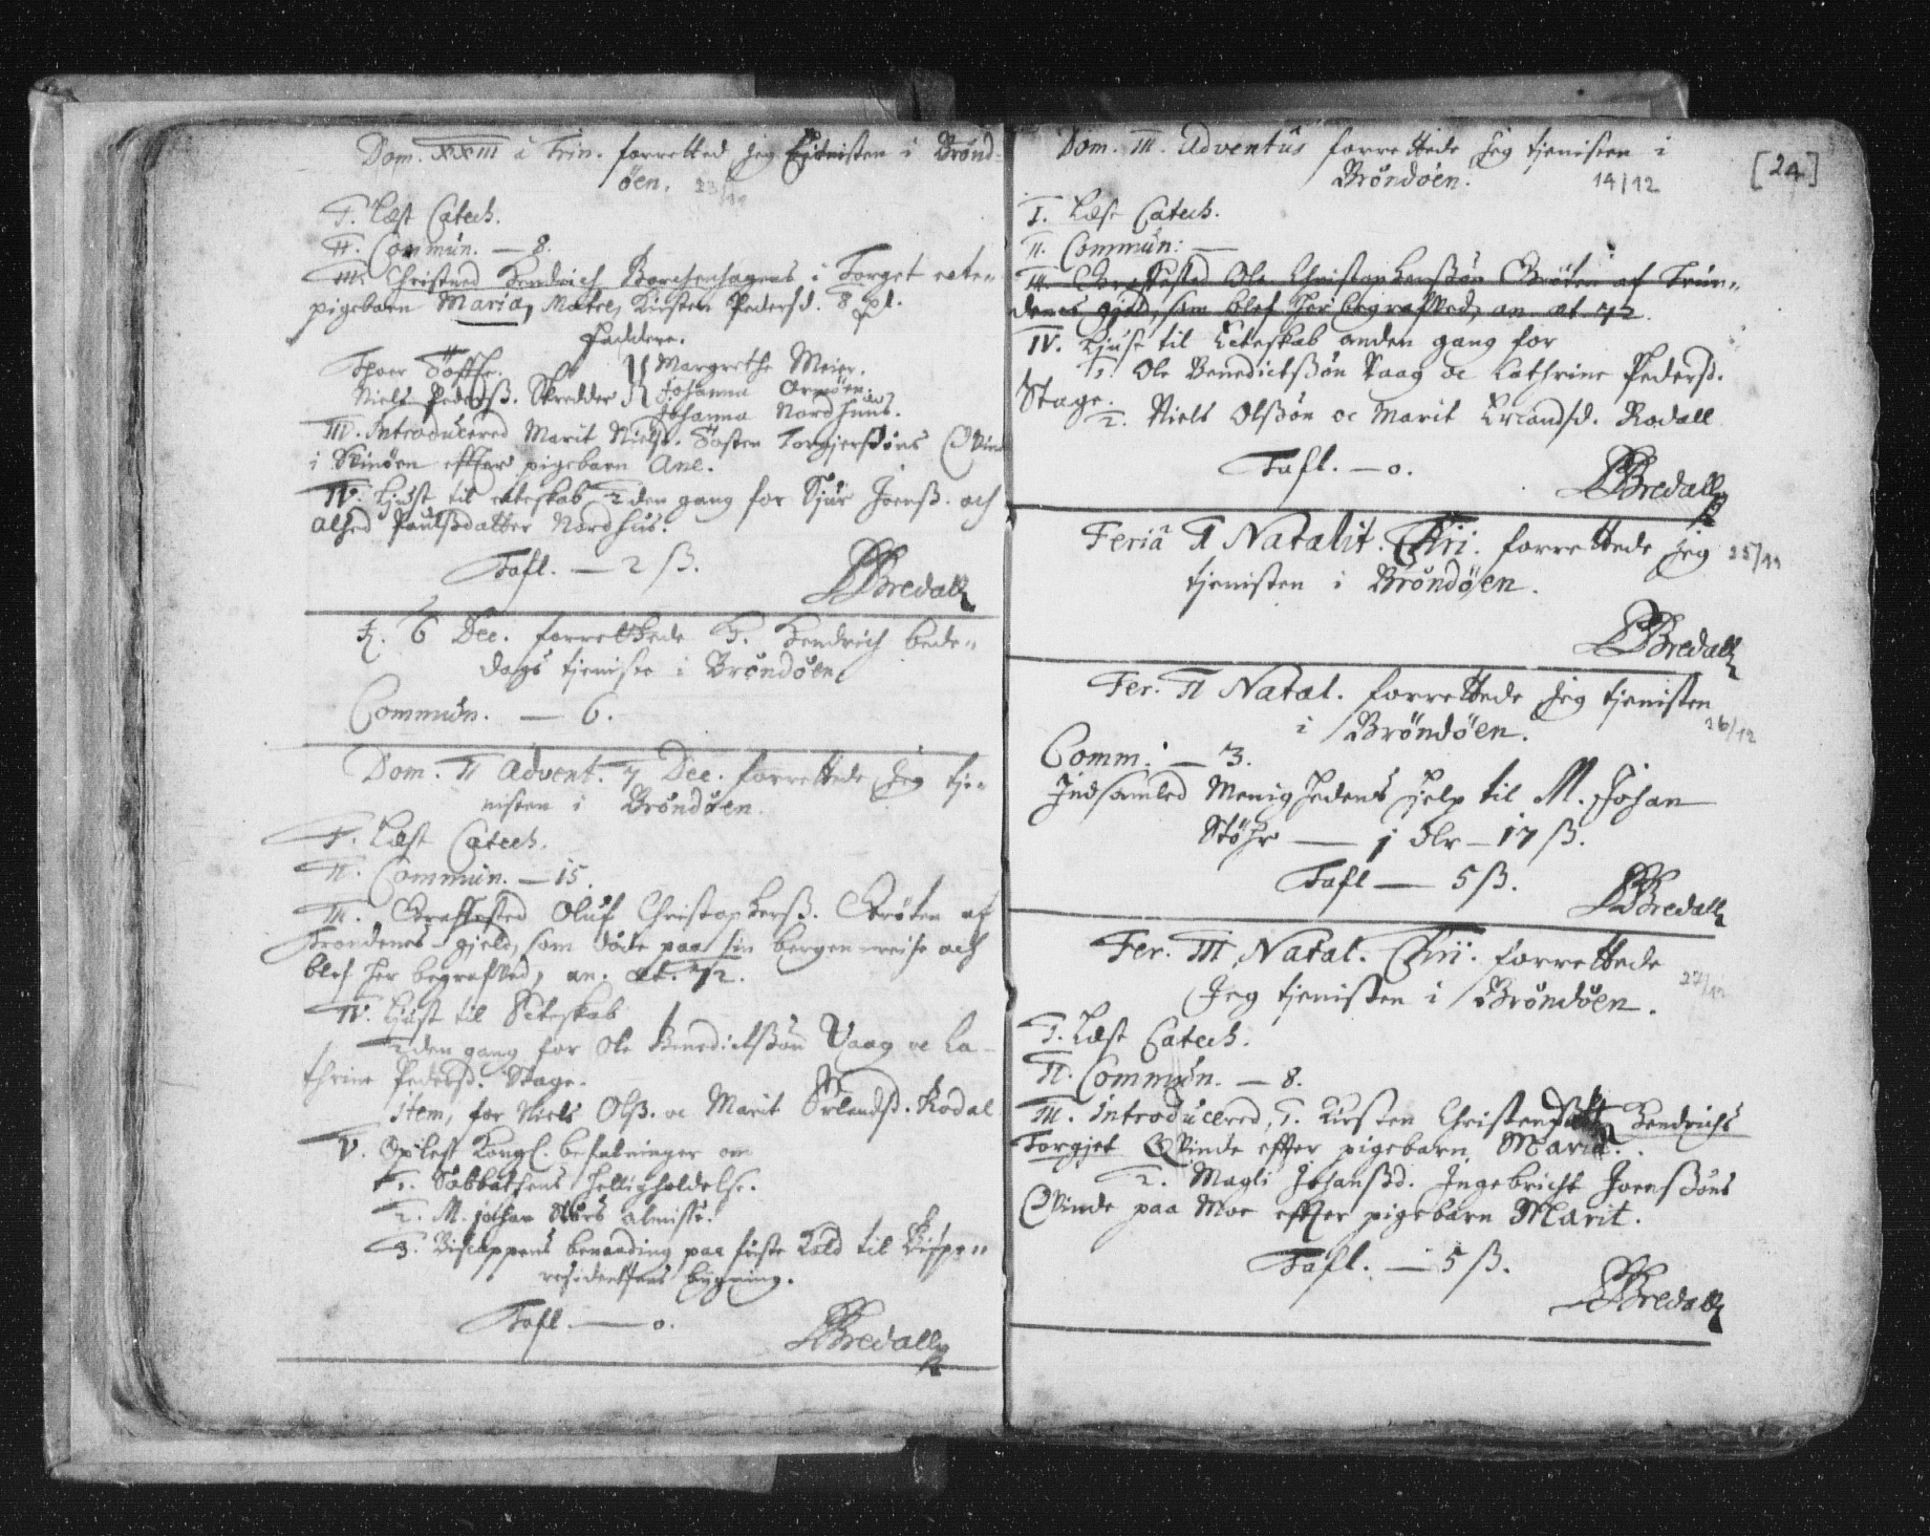 Dom. XXIII à Trin. forretted jeg tjenisten i Brönd-
öen. 23/11
I. Læst Catech.
II. Commun. — 8.
III. Christned Hendrich Borchenhagens i Torget ecte-
pigebarn Maria, Matre, Kirsten Pedersd. 8 pt.
Faddere.
Thoer
Margrethe Meier.
Niels Pederß. Skredder
Johanna
Johanna Nordhuus.
III. Introducered Marit Nielsd. Torgjersöns Qvinde
i efther pigebarn Ane.
IV. Liust til ecteskab 2den gang for Sjur Joenß. och
Alhed Paulßdatter Nordhus.
Tafl. — 2 ß.
Bredall
6 Dec. forrettede H. Hendrich bede-
dags tjeniste i Bröndöen
Commun. — 6.
Dom. II Advent. 7 Dec. forrettede Jeg tje-
nisten i Bröndöen.
I. Læst Catech.
II. Commun. — 15.
III. Oluf Christophersß. af
Trondenes gjeld, som döde paa sin bergen-reise och
blef her begrafved, an. æt. 72.
IV. Liust til Ecteskab
2den gang for Ole Benedictßön Vaag oc Ca-
thrine Pedersd. Stage.
item, for Niels Olß. oc Marit Erlandsd. Rodal
V. Oplest Kongl. befalninger om
1. Sabbathens helligholdelse.
2. M. Johan Störs almisse.
3. Biscoppens paa til Bispe-
residentsens bygning.
Tafl. — 0.
Bredall
Dom. III. Adventus forrettede Jeg tjenisten i
Bröndöen. 14/12
[24]
I. Læst Catech.
II. Commun: —
III. Ole Christophersßön af Tron-
denes gjeld, som blef her begrafved, an. æt. 72.
IV. Liust til Ecteskab anden gang for
1. Ole Benedictßön Vaag oc Cathrine Pedersd.
Stage.
2. Niels Olßön oc Marit Erlandsd. Rodall
Tafl. — 0.
Bredall
Feria I Natalit. Chri. forrettede Jeg 25/12
tjenisten i Bröndöen.
Bredall
Fer. II Natal. forrettede Jeg tjenisten
i Bröndöen. 26/12
Comm: — 3.
Indsamled Menighedens hjelp til M. Johan
Stöhr — 1 dlr — 17 ß.
Tafl — 5 ß.
Bredall
Fer. III Natal. Chri. forrettede
Jeg tjenisten i Bröndöen. 27/12
I. Læst Catech.
II. Commun. — 8.
III. Introducered, 1. Kirsten Hendrichs
Torgjet Qvinde effter pigebarn Maria.
2. Magli Johansd. Ingebricht Joensßöns
Qvinde paa Moe effter pigebarn Marit.
Tafl. — 5 ß.
Bredall